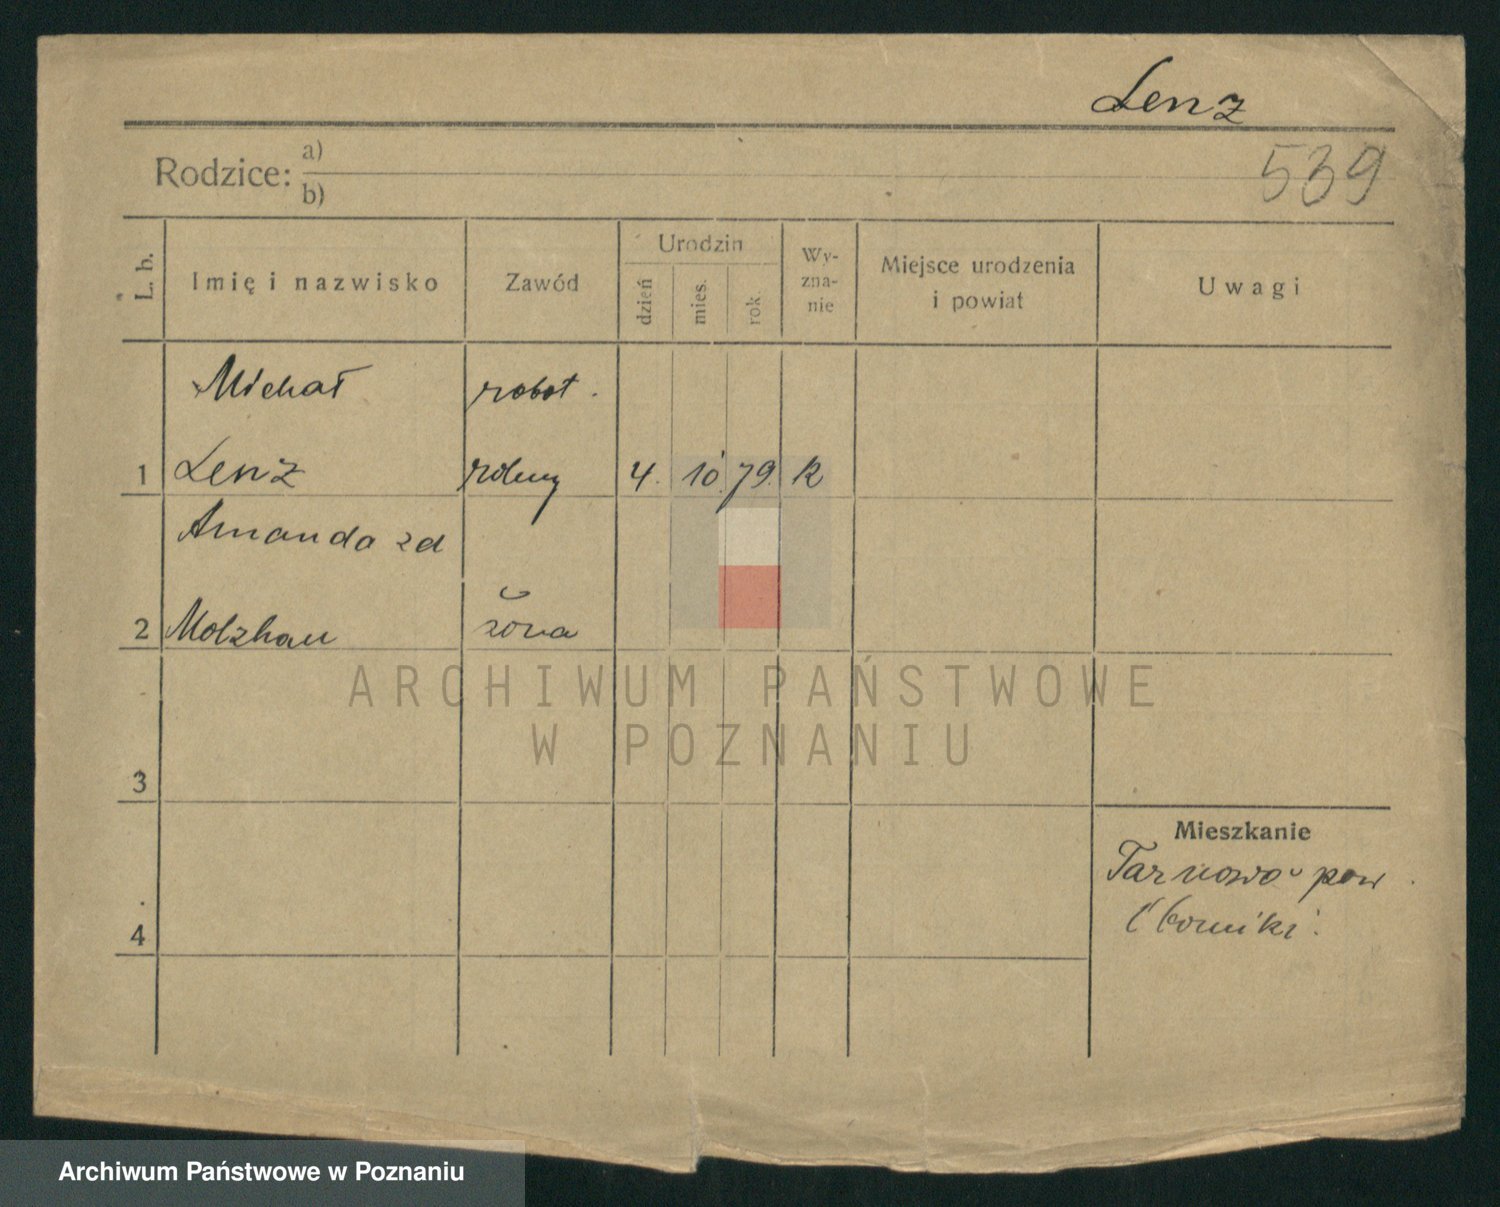 Lenz
539
Rodzice: a)
b)
L. b.
Imię i nazwisko
Zawód
Urodzin
dzień
mies.
rok.
Wy-
zna-
nie
Miejsce urodzenia
i powiat
Uwagi
Michał
robot.
1 Lenz rolny 4. 10. 79. k
Amanda zd
2 Molzhau żona
ARCHIWUM PAŃSTWOWE
W POZNANIU
3
Mieszkanie
Tarnowo pow.
Oborniki
4
Archiwum Państwowe w Poznaniu